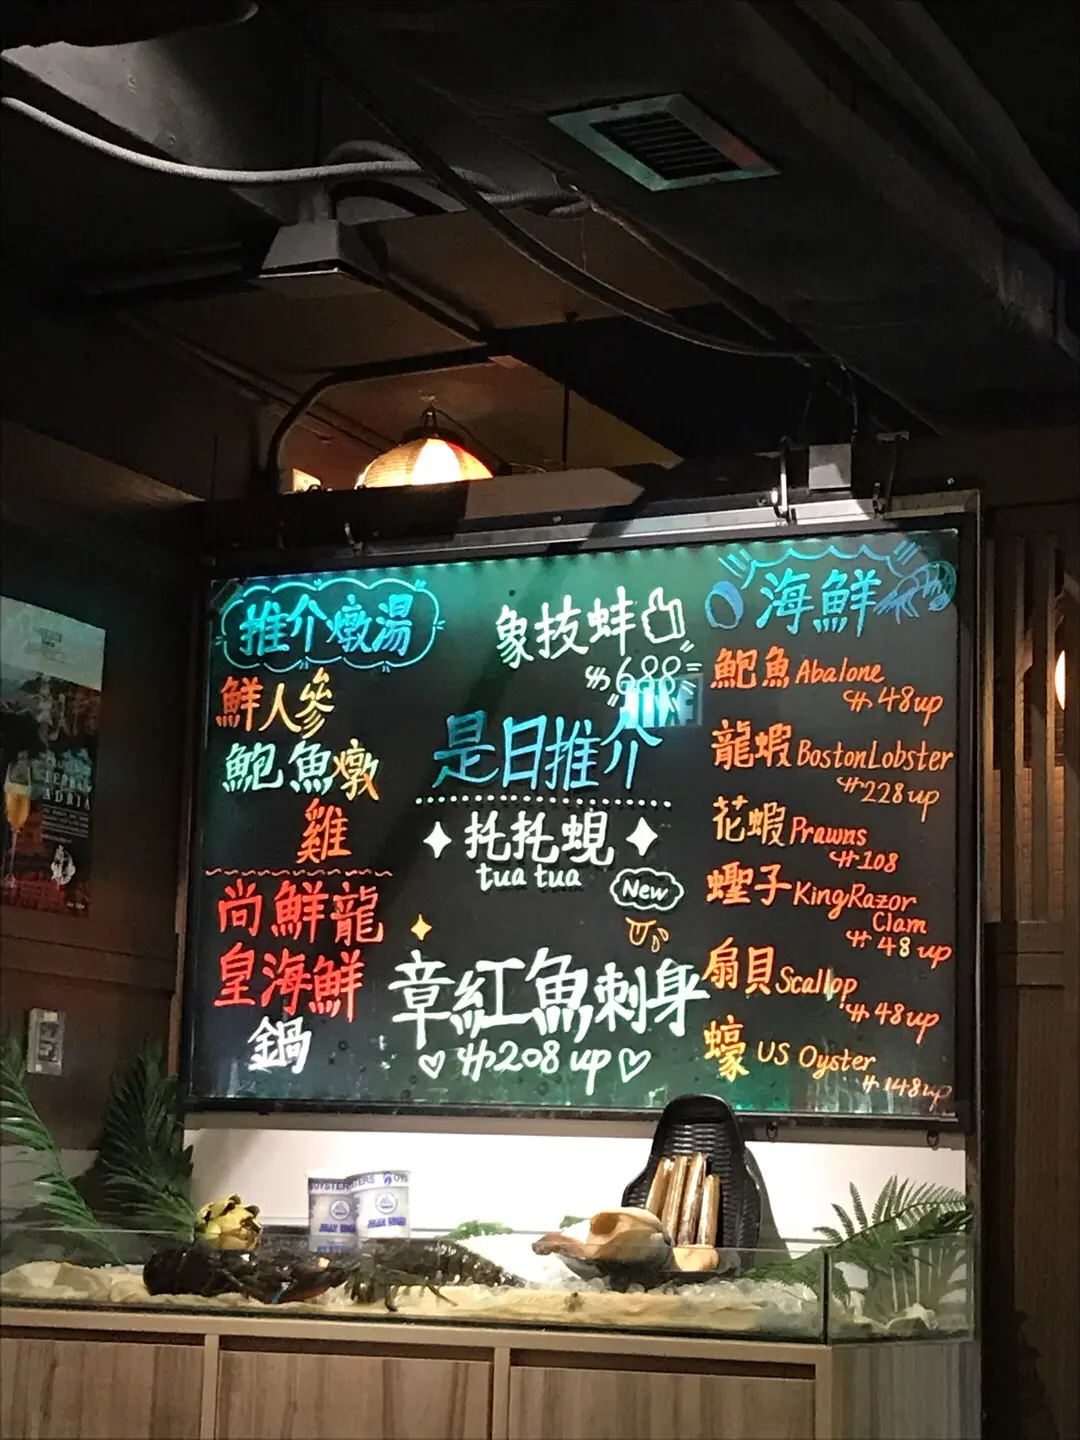 推介燉湯
鮮人參
鮑魚燉
雞
尚鮮龍
皇海鮮
鍋
象拔蚌
$688=
是日推介
托托蜆
tua tua
New
章紅魚刺身
$208 up
海鮮
鮑魚 Abalone
$48up
龍蝦 Boston Lobster
$228up
花蝦 Prawns
$108
蟶子 King Razor
Clam
$48 up
扇貝 Scallop
$48up
蠔 US Oyster
$148up